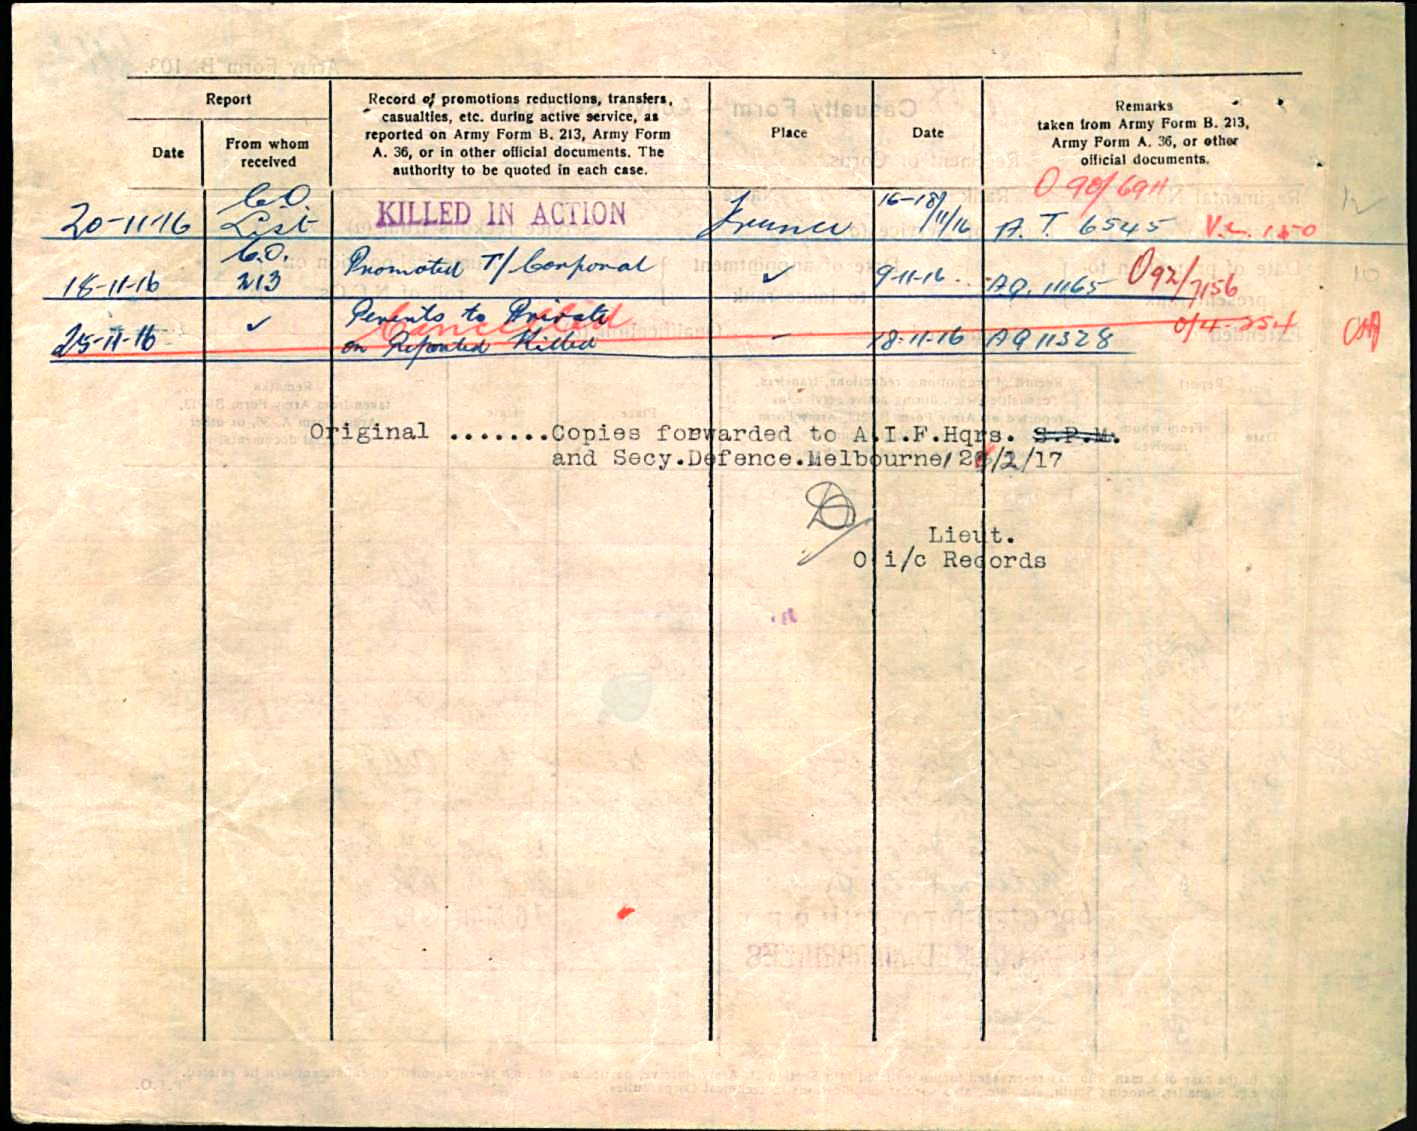 Report
Date
From whom
received
Record of promotions reductions, transfers,
casualties, etc. during active service, as
reported on Army Form B. 213, Army Form
A. 36, or in other official documents. The
authority to be quoted in each case.
Place
Date
Remarks
taken from Army Form B. 213,
Army Form A. 36, or other
official documents.
O 90/694
20-11-16 C.O. List KILLED IN ACTION France 16-18/11/16 A.T. 6545
18-11-16 C.O. 213 Promoted T/Corporal ✓ 9-11-16 AQ. 11165 O 92/7156
25-11-16 ✓ Reverts to Private
on Reported Killed - 18-11-16 AQ 11328 O/4-254
Cancelled
Original .......Copies forwarded to A.I.F.Hqrs. S.P.M.
and Secy.Defence.Melbourne, /2/17
Lieut.
O i/c Records